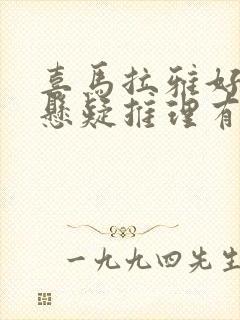 喜马拉雅好
悬疑推理有
一九九四先生